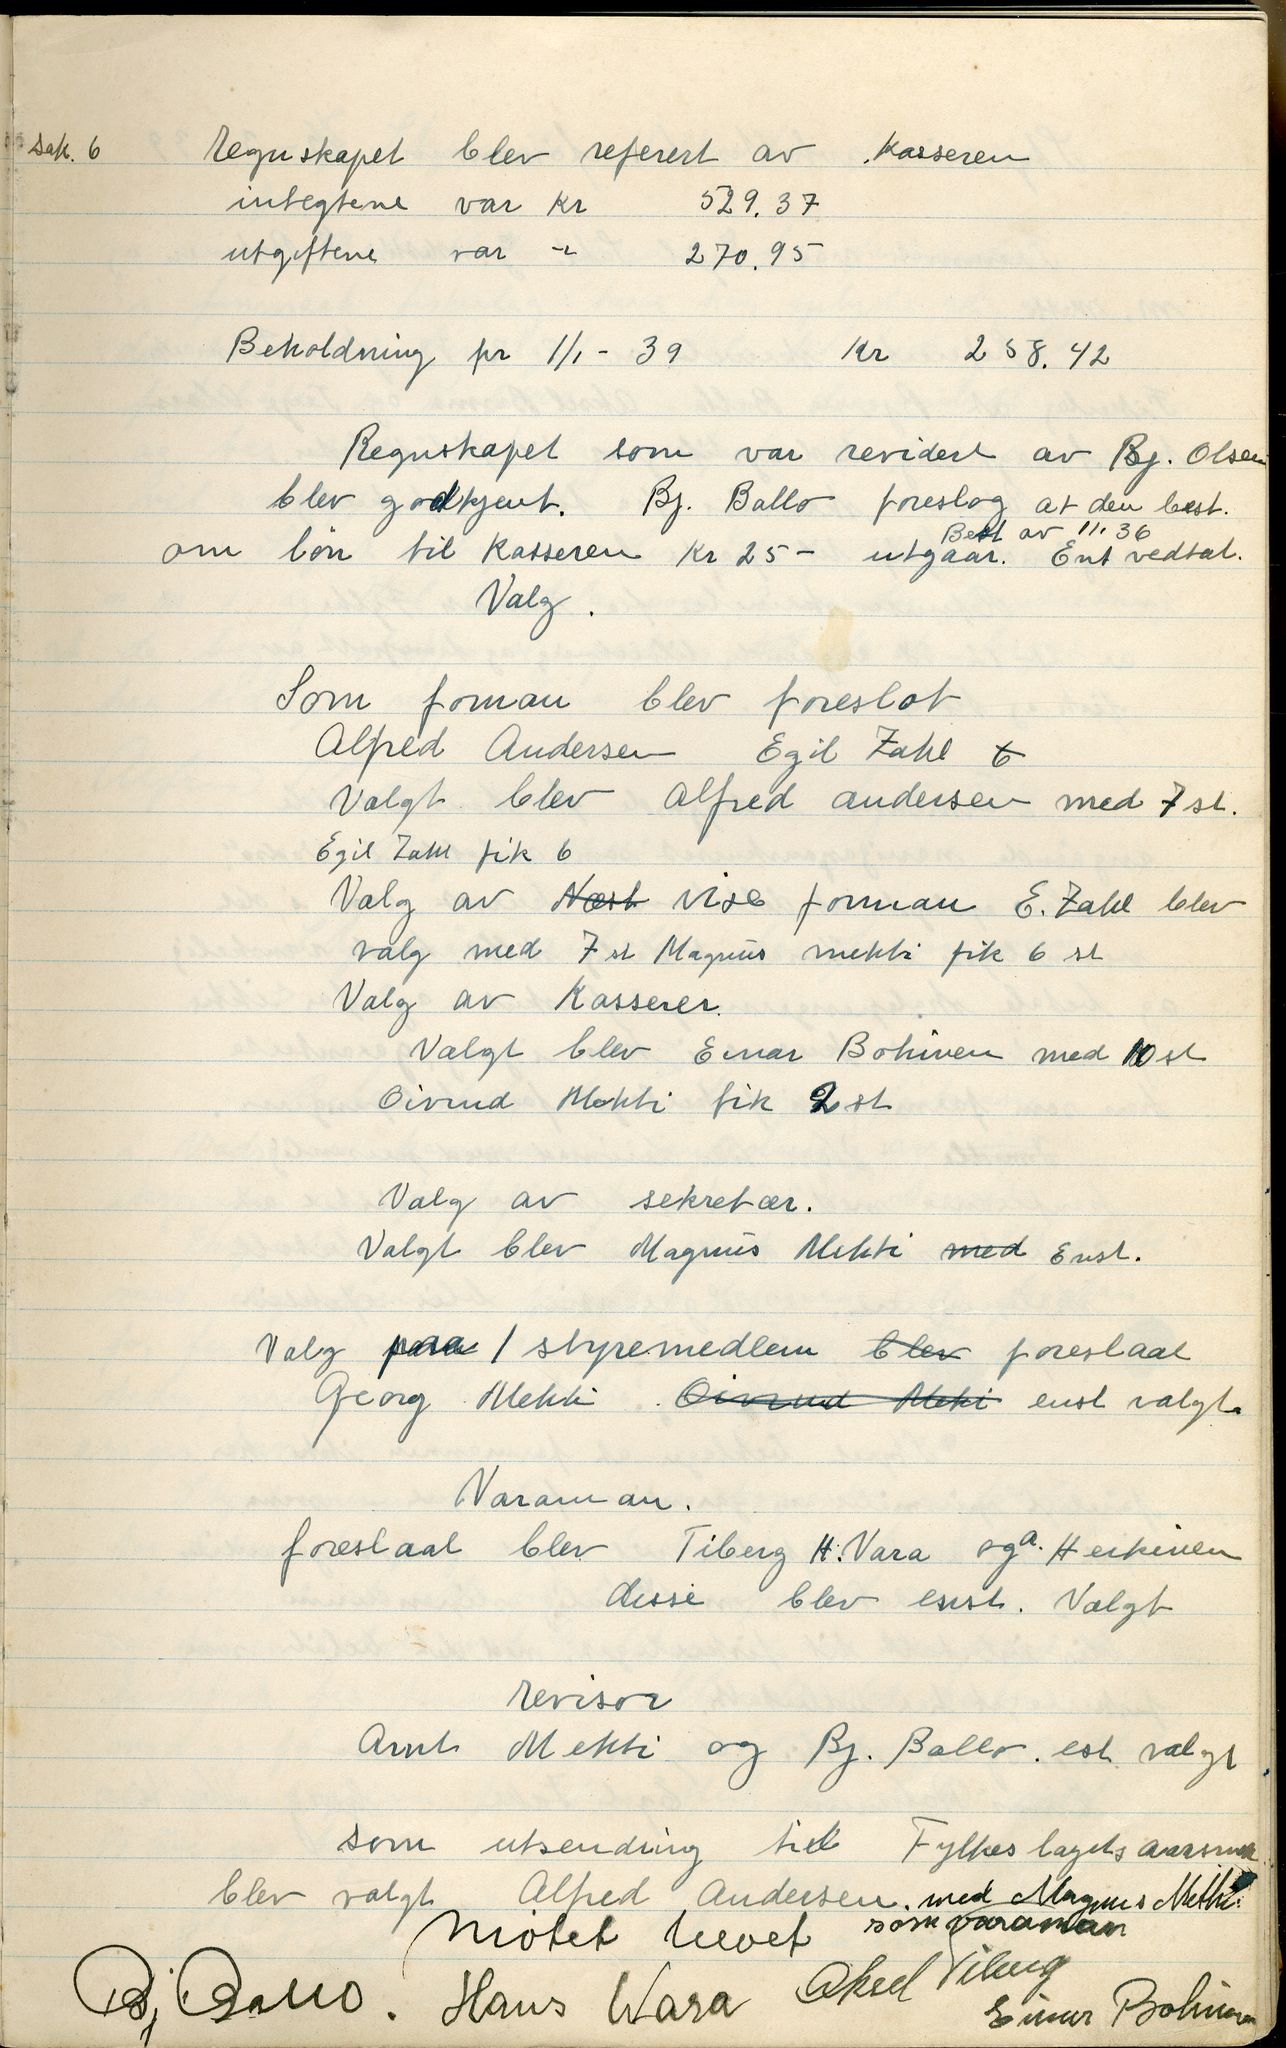 Sak. 6 Regnskapet blev referert av Kasseren
integtene var kr 529.37
utgiftene var -"- 270.95
Beholdning pr 1/1 - 39 Kr 258.42
Regnskapet som var revidert av Bj. Olsen
blev godkjent. Bj. Ballo foreslog at den best.
Best av 11/1 36
om lön til Kasseren Kr 25- utgaar. Ent vedtat.
Valg.
Som forman blev foreslot
Alfred Andersen Egil Zahl 6
Valgt blev Alfred andersen med 7 st.
Egil Zahl fik 6
Valg av Næst vise forman E. Zahl blev
valg med 7 st Magnus mekki fik 6 st
Valg av Kasserer.
Valgt blev Einar Bohinen med 10 st
Oivind Mekki fik 2 st
Valg av sekretær.
Valgt blev Magnus Mekki med Enst.
Valg paa 1 styremedlem blev foreslaat
Georg Mekki. Oivind Mekki enst valgt.
Varaman.
foreslaat blev Tiberg H. Vara og a. Heikinen
disse blev enst. Valgt
revisor
Arnt Mekki og Bj. Ballo. est valgt
som utsending til Fylkeslagets aarsmøte
blev valgt Alfred Andersen. med Magnus Mekki
som varaman
Mötet hevet
Bj Ballo. Hans Wara Aksel Tiberg
Einar Bohinen